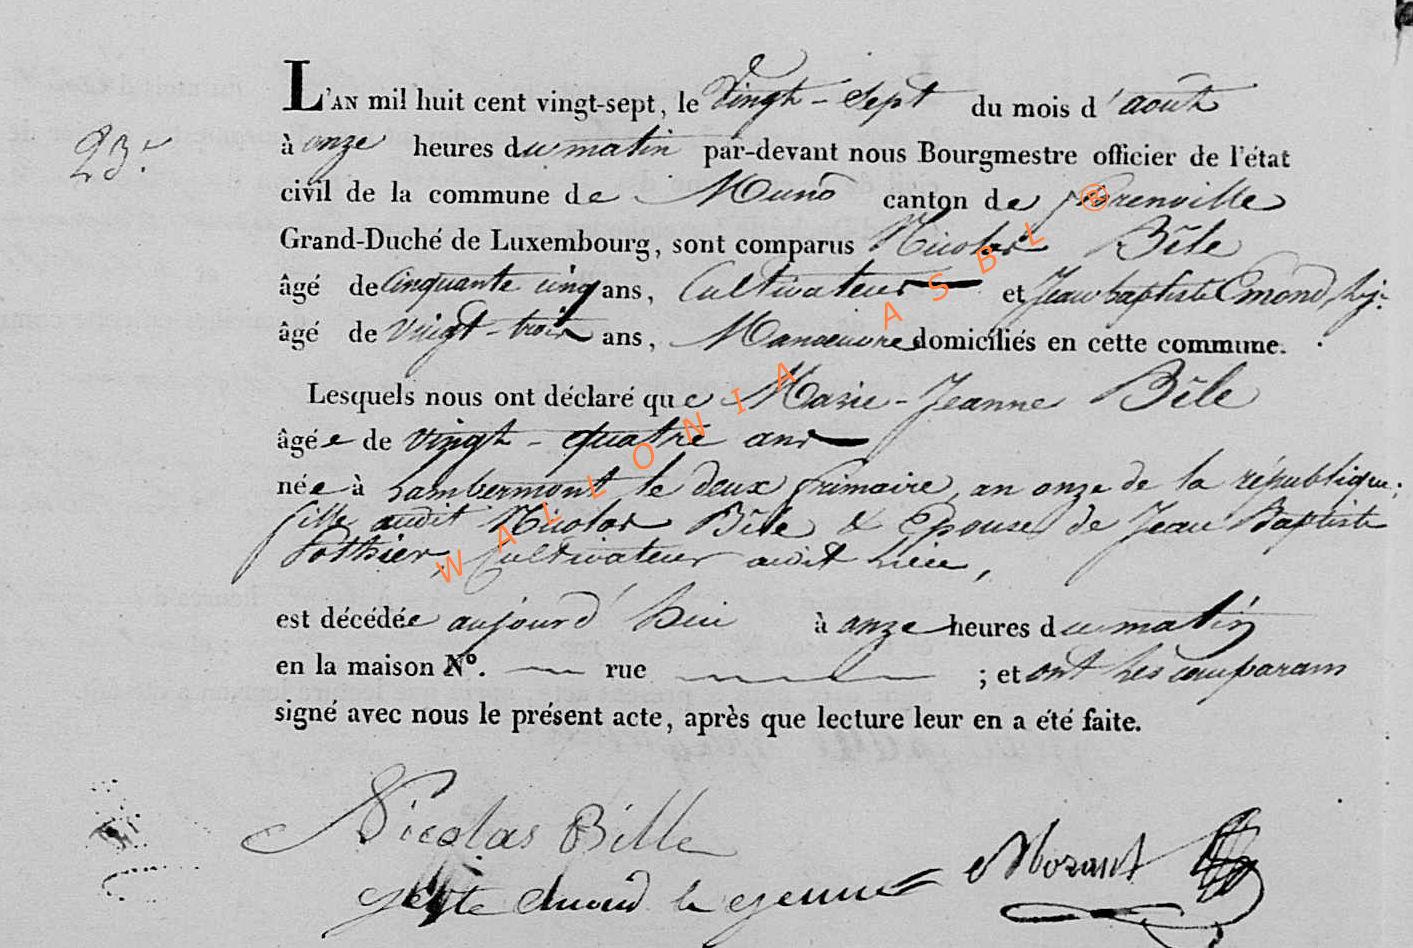 L'AN mil huit cent vingt-sept, le Vingt-Sept du mois d'août
23.e
à onze heures du matin par-devant nous Bourgmestre officier de l'état
civil de la commune de Muno canton de florenville
Grand-Duché de Luxembourg, sont comparus Nicolas Bêle
âgé de Cinquante cinq ans, Cultivateur et Jean baptiste Emond, 
âgé de Vingt-trois ans, Manœuvre domiciliés en cette commune.
Lesquels nous ont déclaré que Marie-Jeanne Bêle
âgée de Vingt-quatre ans
née à Lambermont, le deux frimaire, an onze de la république;
fille audit Nicolas Bêle & Epouse de Jean Baptiste
Pothier, Cultivateur audit Lieu,
est décédée aujourd'hui à onze heures du matin
en la maison N°. rue ; et ont les comparans
signé avec nous le présent acte, après que lecture leur en a été faite.
Nicolas Bille
le jeune
Mozaut
WALLONIA ASBL ®